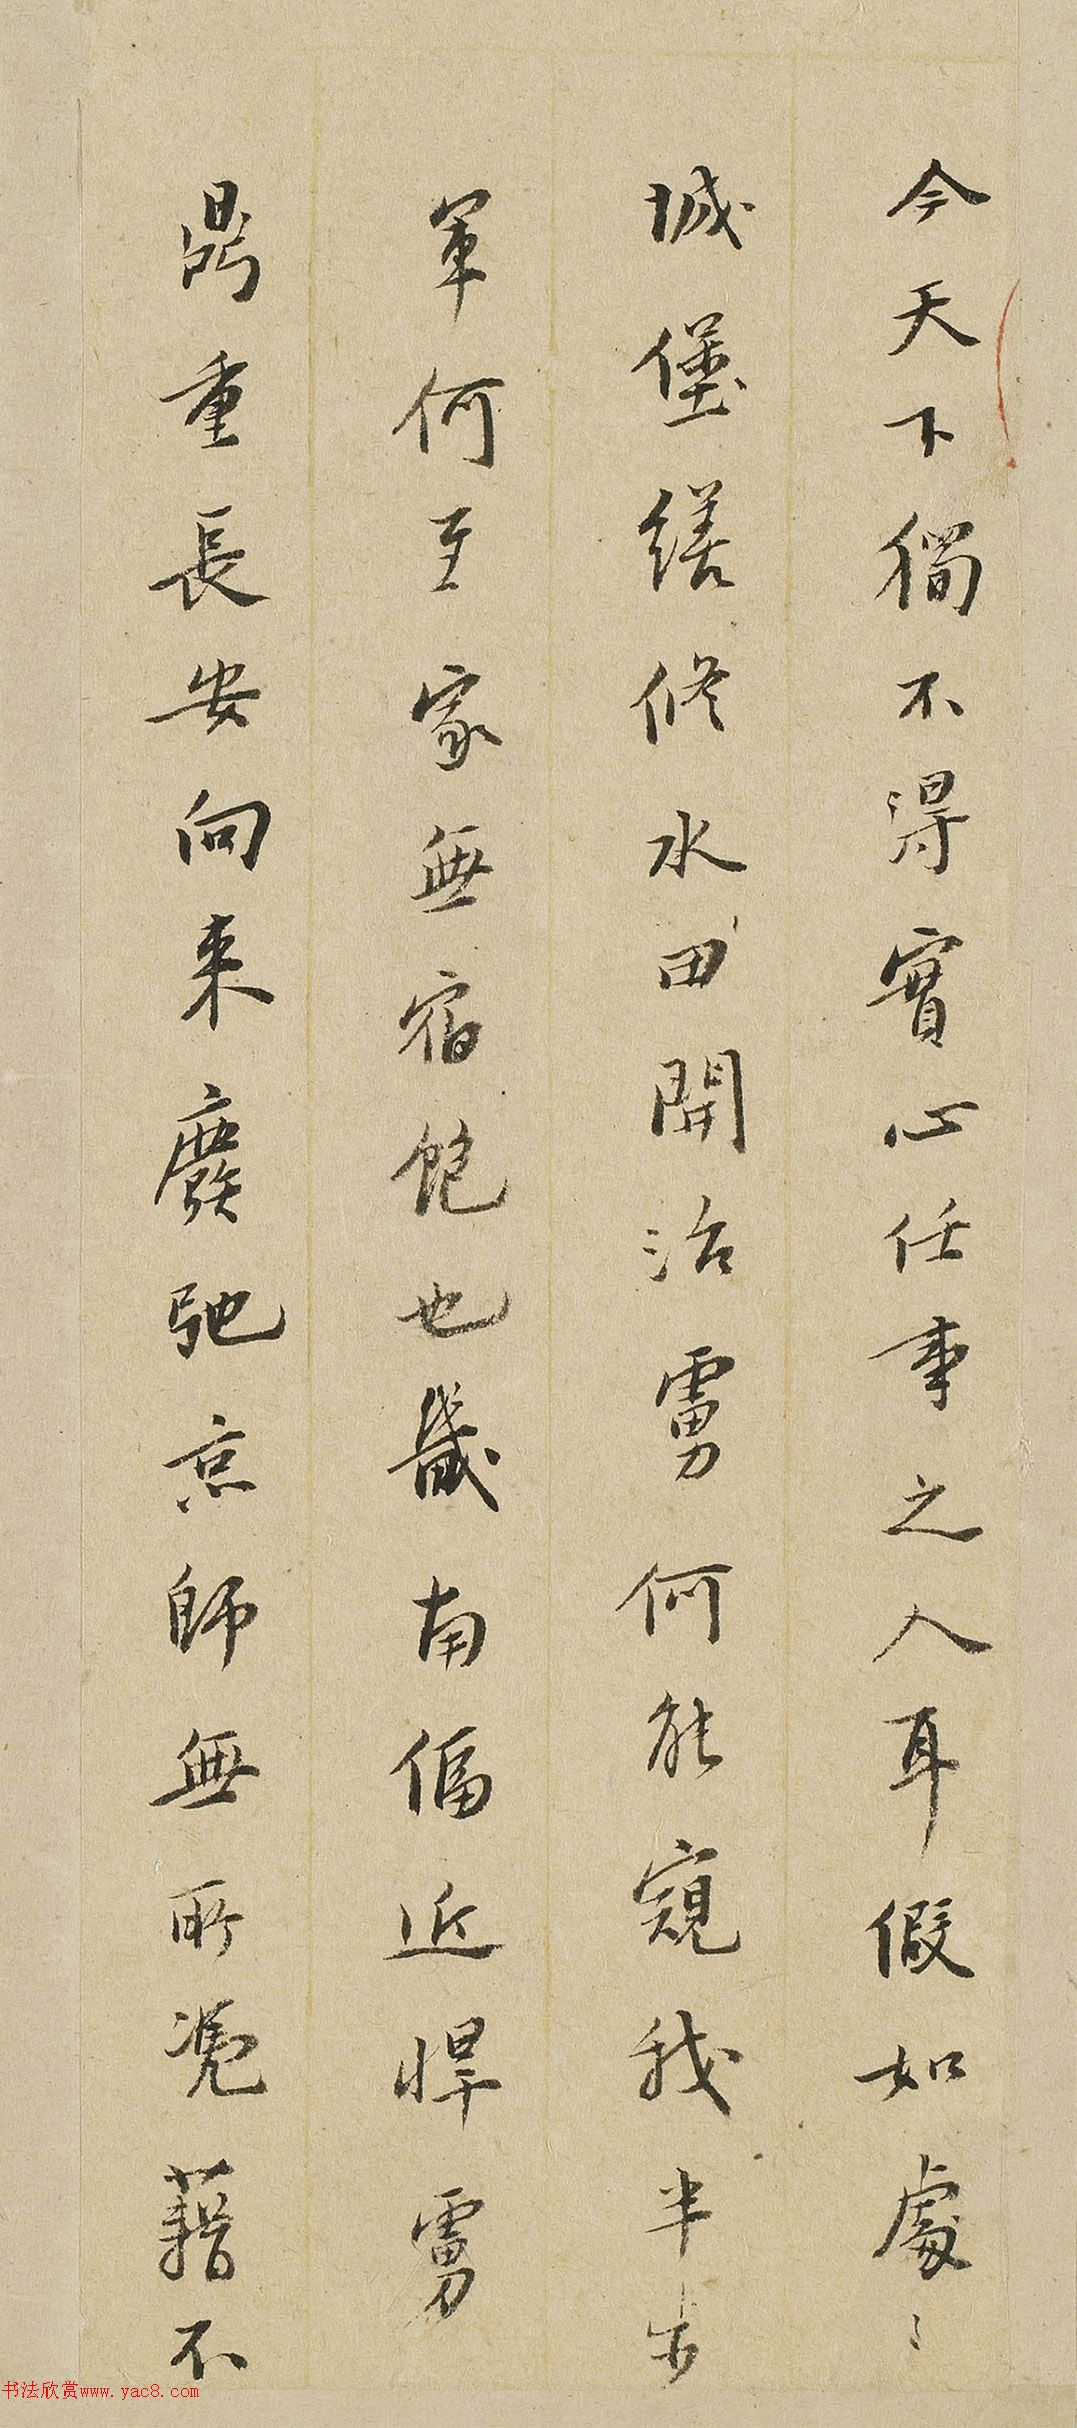 今天下獨不得實心任事之人耳假如處〻
城堡繕修水田開治虜何能窺我半步
軍何至家無宿飽也畿南偪近悍虜
鼎重長安向来廢弛京師無所凴藉不
书法欣赏www.yac8.com